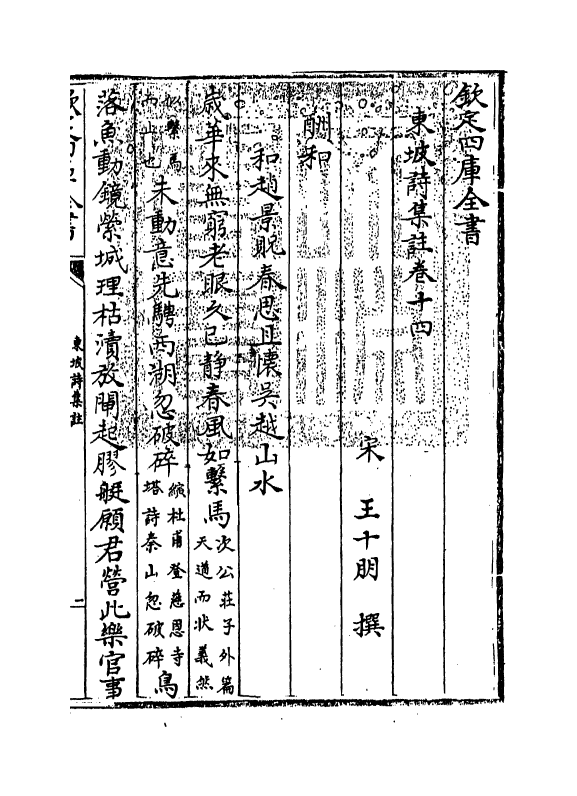 欽定四庫全書
東坡詩集註卷十四
宋 王十朋 撰
酬和
和趙景貺春思且懷吳越山水
歲華來無窮老眼久已靜春風如繫馬次公莊子外篇天道而狀義然
似繫馬而止也未動意先騁西湖忽破碎縯杜甫登慈恩寺塔詩秦山忽破碎鳥
落魚動鏡縈城理枯瀆放閘起膠艇願君營此樂官事
東坡詩集註
二